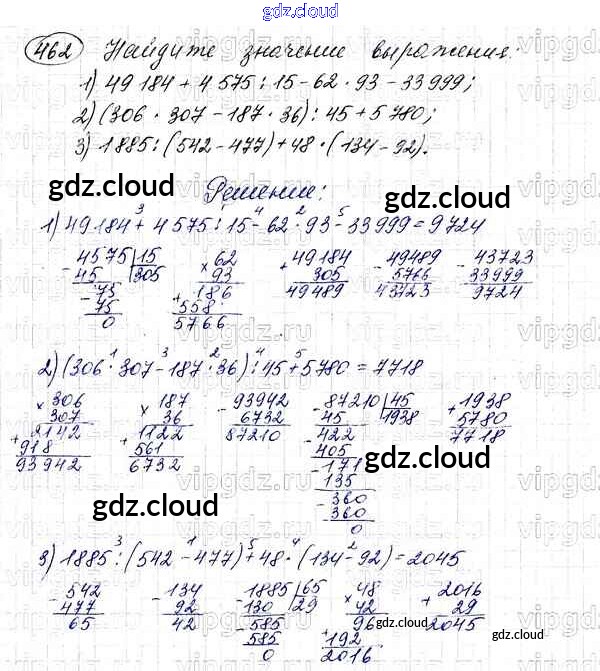 gdz.cloud
462 Найдите значение выражения.
1) 49 184 + 4 575 : 15 - 62 · 93 - 33 999;
2) (306 · 307 - 187 · 36) : 45 + 5 780;
3) 1885 : (542 - 477) + 48 · (134 - 92).
gdz.cloud gdz.cloud
Решение:
1) 49 184 + 4 575 : 15 - 62 · 93 - 33 999 = 9 724
3 1 4 2 5
- 4575 | 15 × 62 + 49184 - 49489 - 43723
45 | 305 93 305 5766 33999
- 75 + 186 49489 43723 9724
75 558
0 5766
2) (306 · 307 - 187 · 36) : 45 + 5 780 = 7 718
1 3 2 4 5
× 306 × 187 - 93942 - 87210 | 45 + 1938
307 36 6732 45 | 1938 5780
+ 2142 + 1122 87210 - 422 7718
918 561 405
93942 6732 - 171
135
- 360
360
0
gdz.cloud gdz.cloud
3) 1885 : (542 - 477) + 48 · (134 - 92) = 2045
3 1 5 4 2
- 542 - 134 - 1885 | 65 × 48 + 2016
477 92 130 | 29 42 29
65 42 - 585 96 2045
585 + 192
0 2016
gdz.cloud gdz.cloud